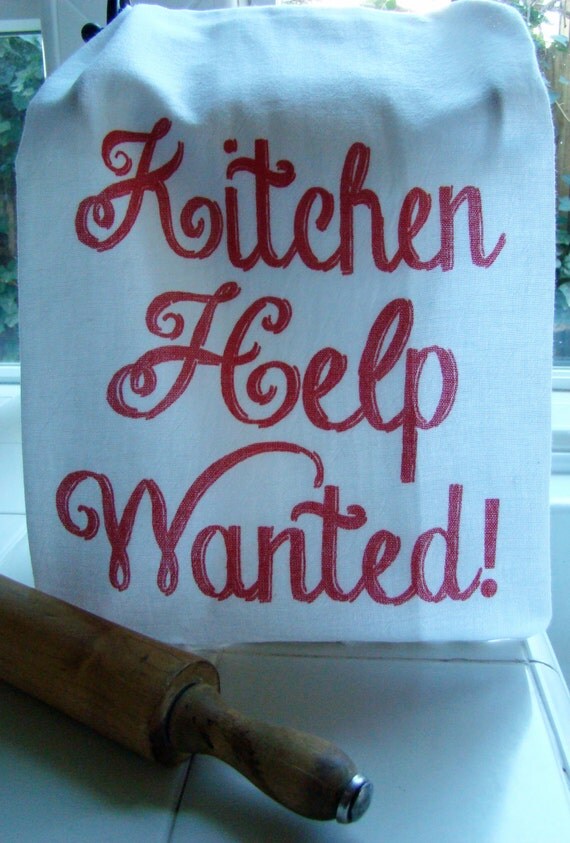 Kitchen
Help
Wanted!